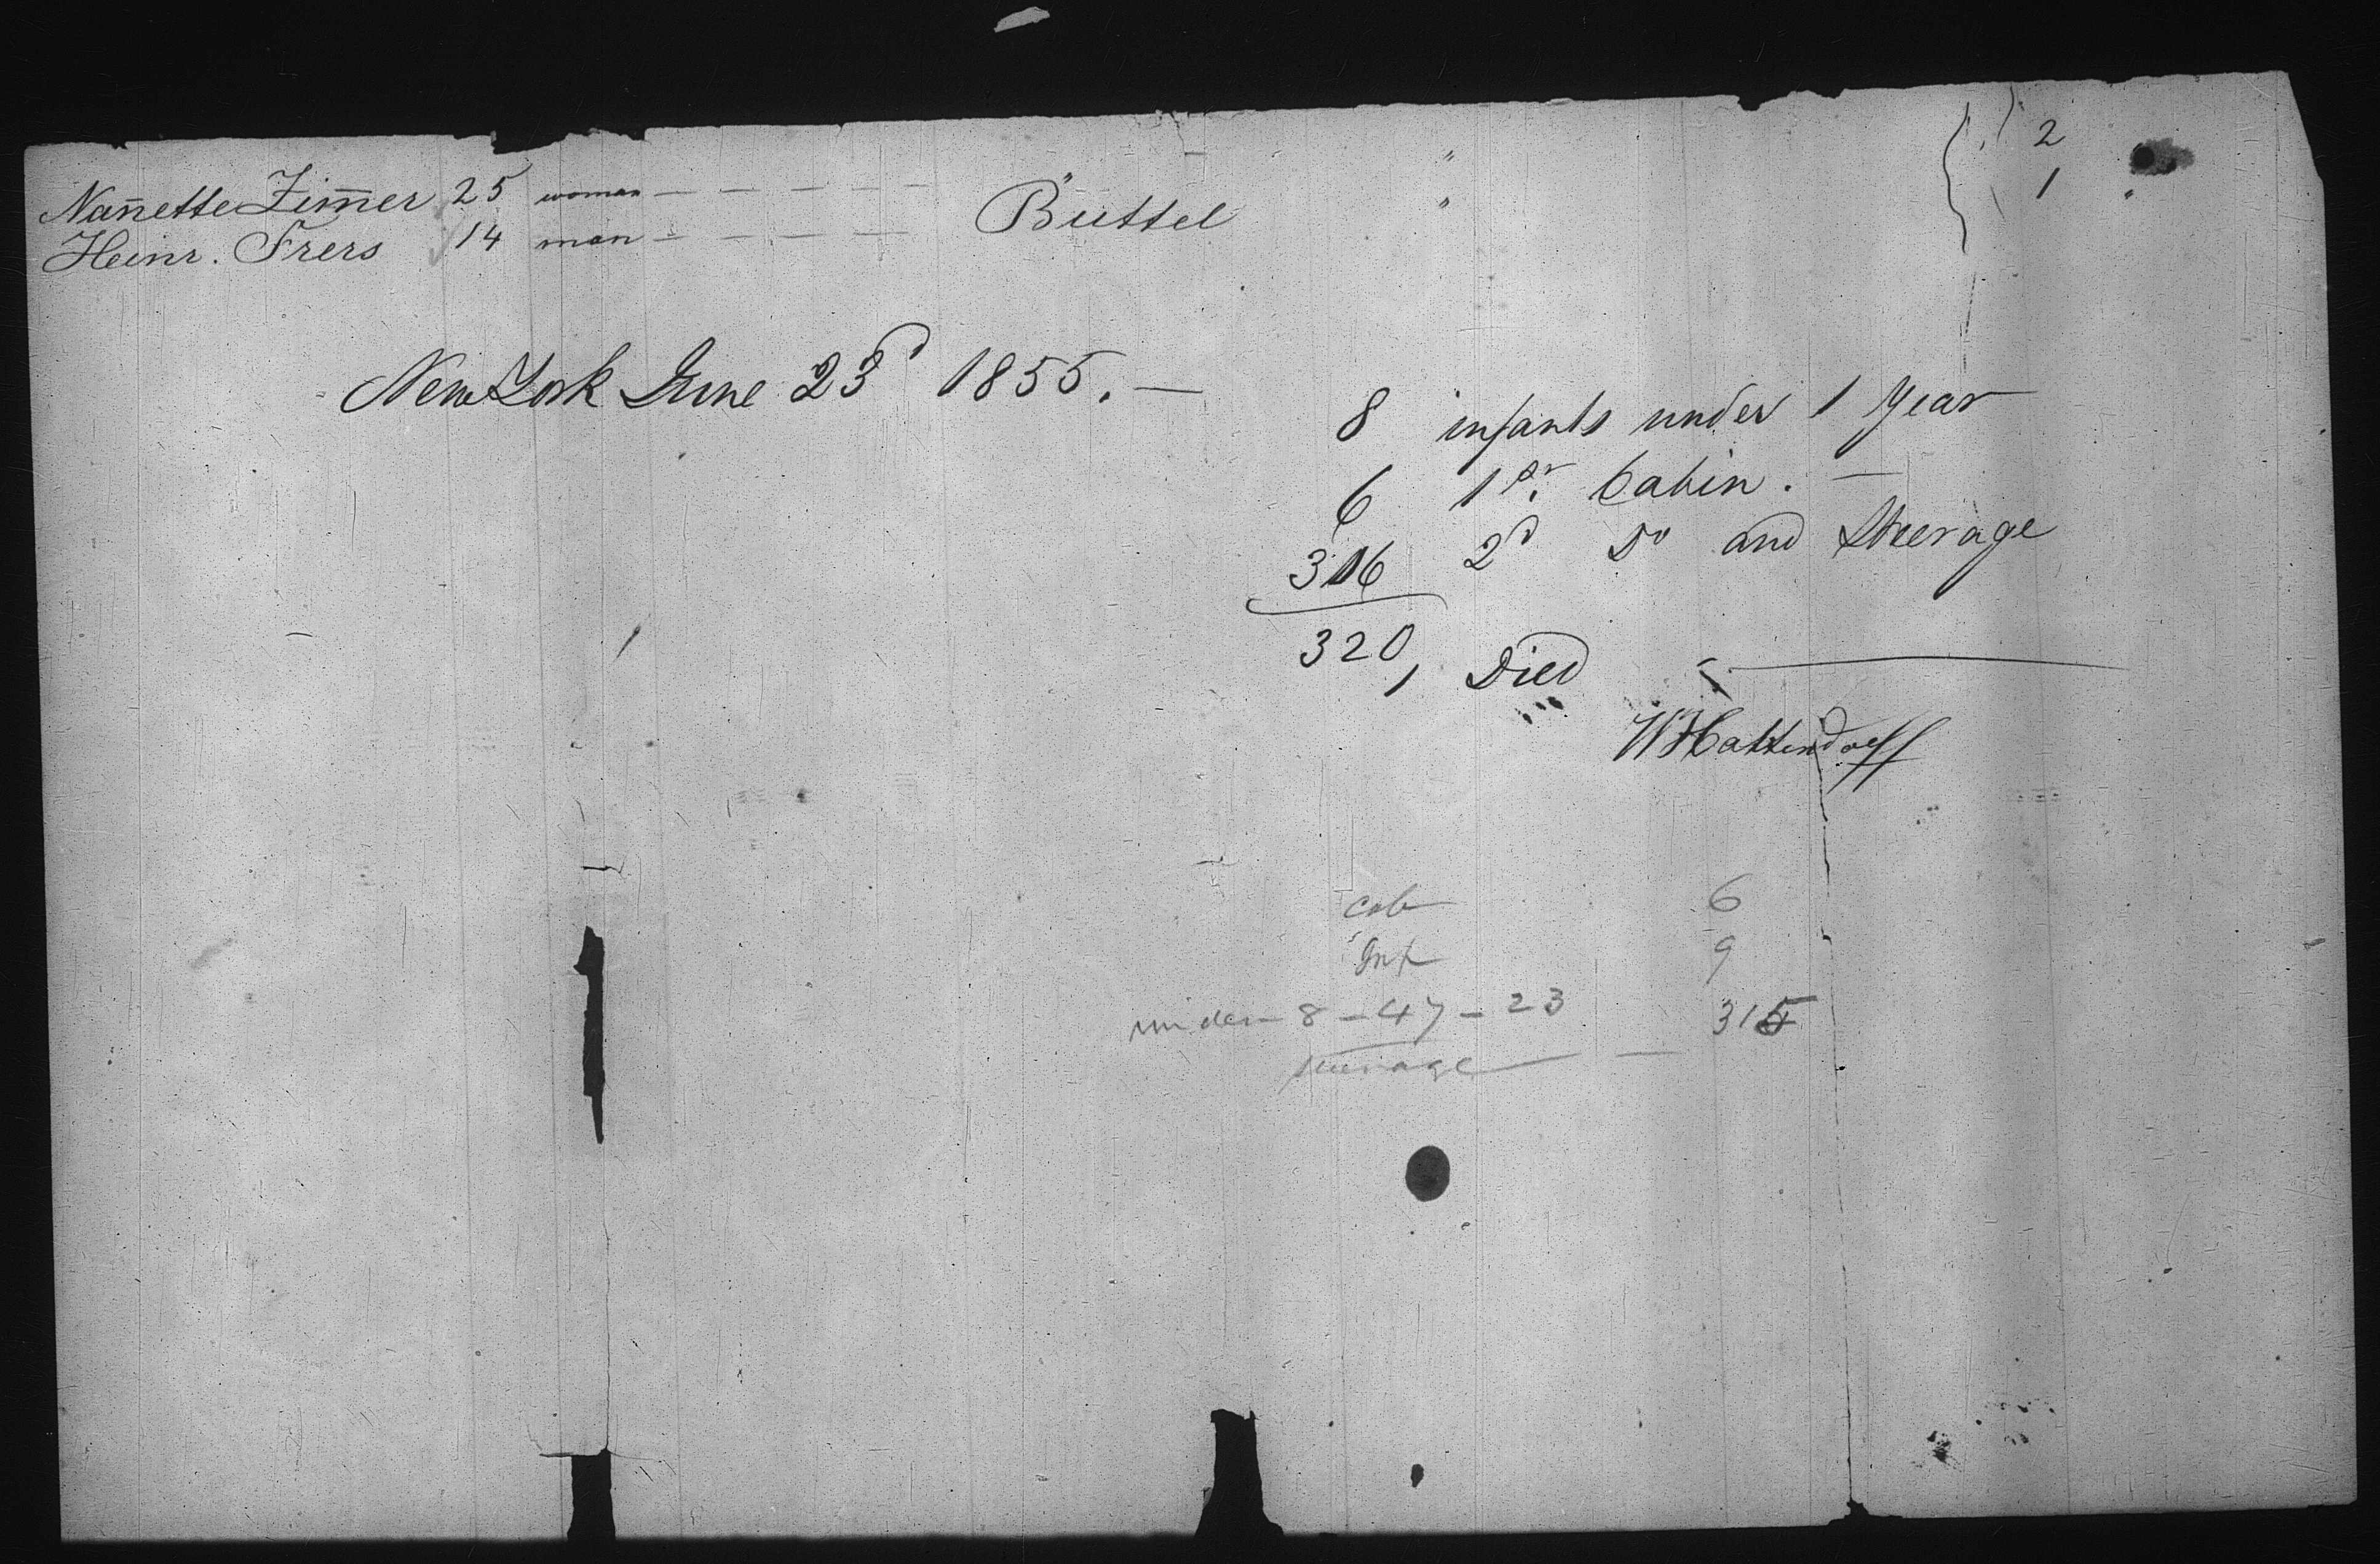 Nan̄ette Zim̄er 25 woman — — — — — " " 2
Heinr. Frers 14 man — — — — — Büttel " 1 "
New York June 23d 1855. —
8 infants under 1 Year
6 1st Cabin. —
306 2d Do and Steerage
320
1 Died
W Hattendorff
Cab 6
Inf 9
under — 8 — 47 — 23 315
steerage —